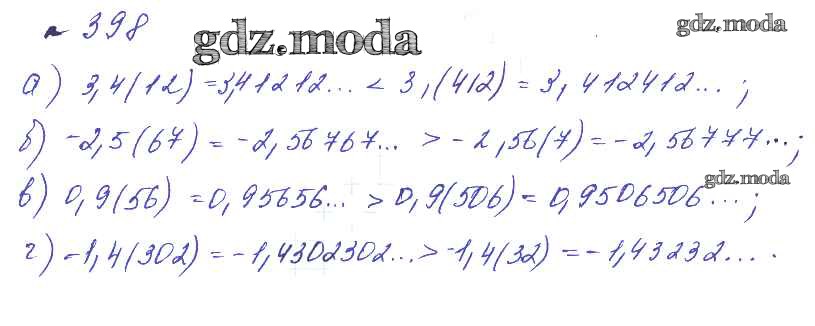 № 398
gdz.moda
gdz.moda
а) 3,4(12) = 3,41212... < 3,(412) = 3,412412...;
б) -2,5(67) = -2,56767... > -2,56(7) = -2,56777...;
gdz.moda
в) 0,9(56) = 0,95656... > 0,9(506) = 0,9506506...;
г) -1,4(302) = -1,4302302... > -1,4(32) = -1,43232... .